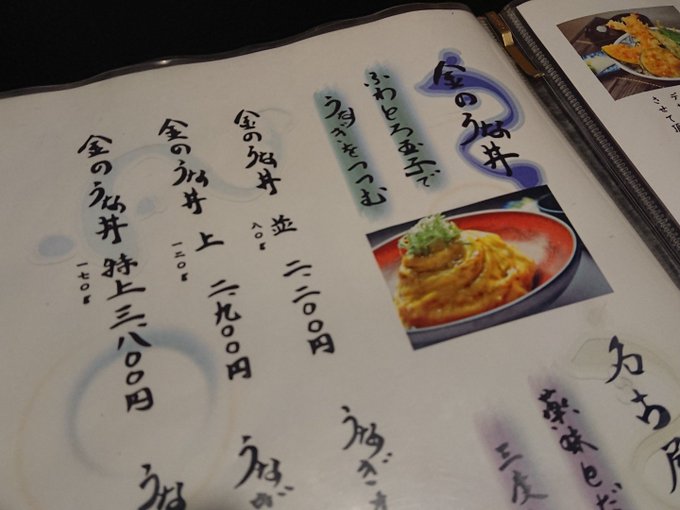 金のうな丼
ふわとろ玉子で
うなぎをつつむ
金のうな丼 並 二、二〇〇円
八〇g
金のうな丼 上 二、九〇〇円
一二〇g
金のうな丼 特上 三、八〇〇円
一七〇g
名古屋
薬味とだ
三度
うなぎ
うなぎ
うな